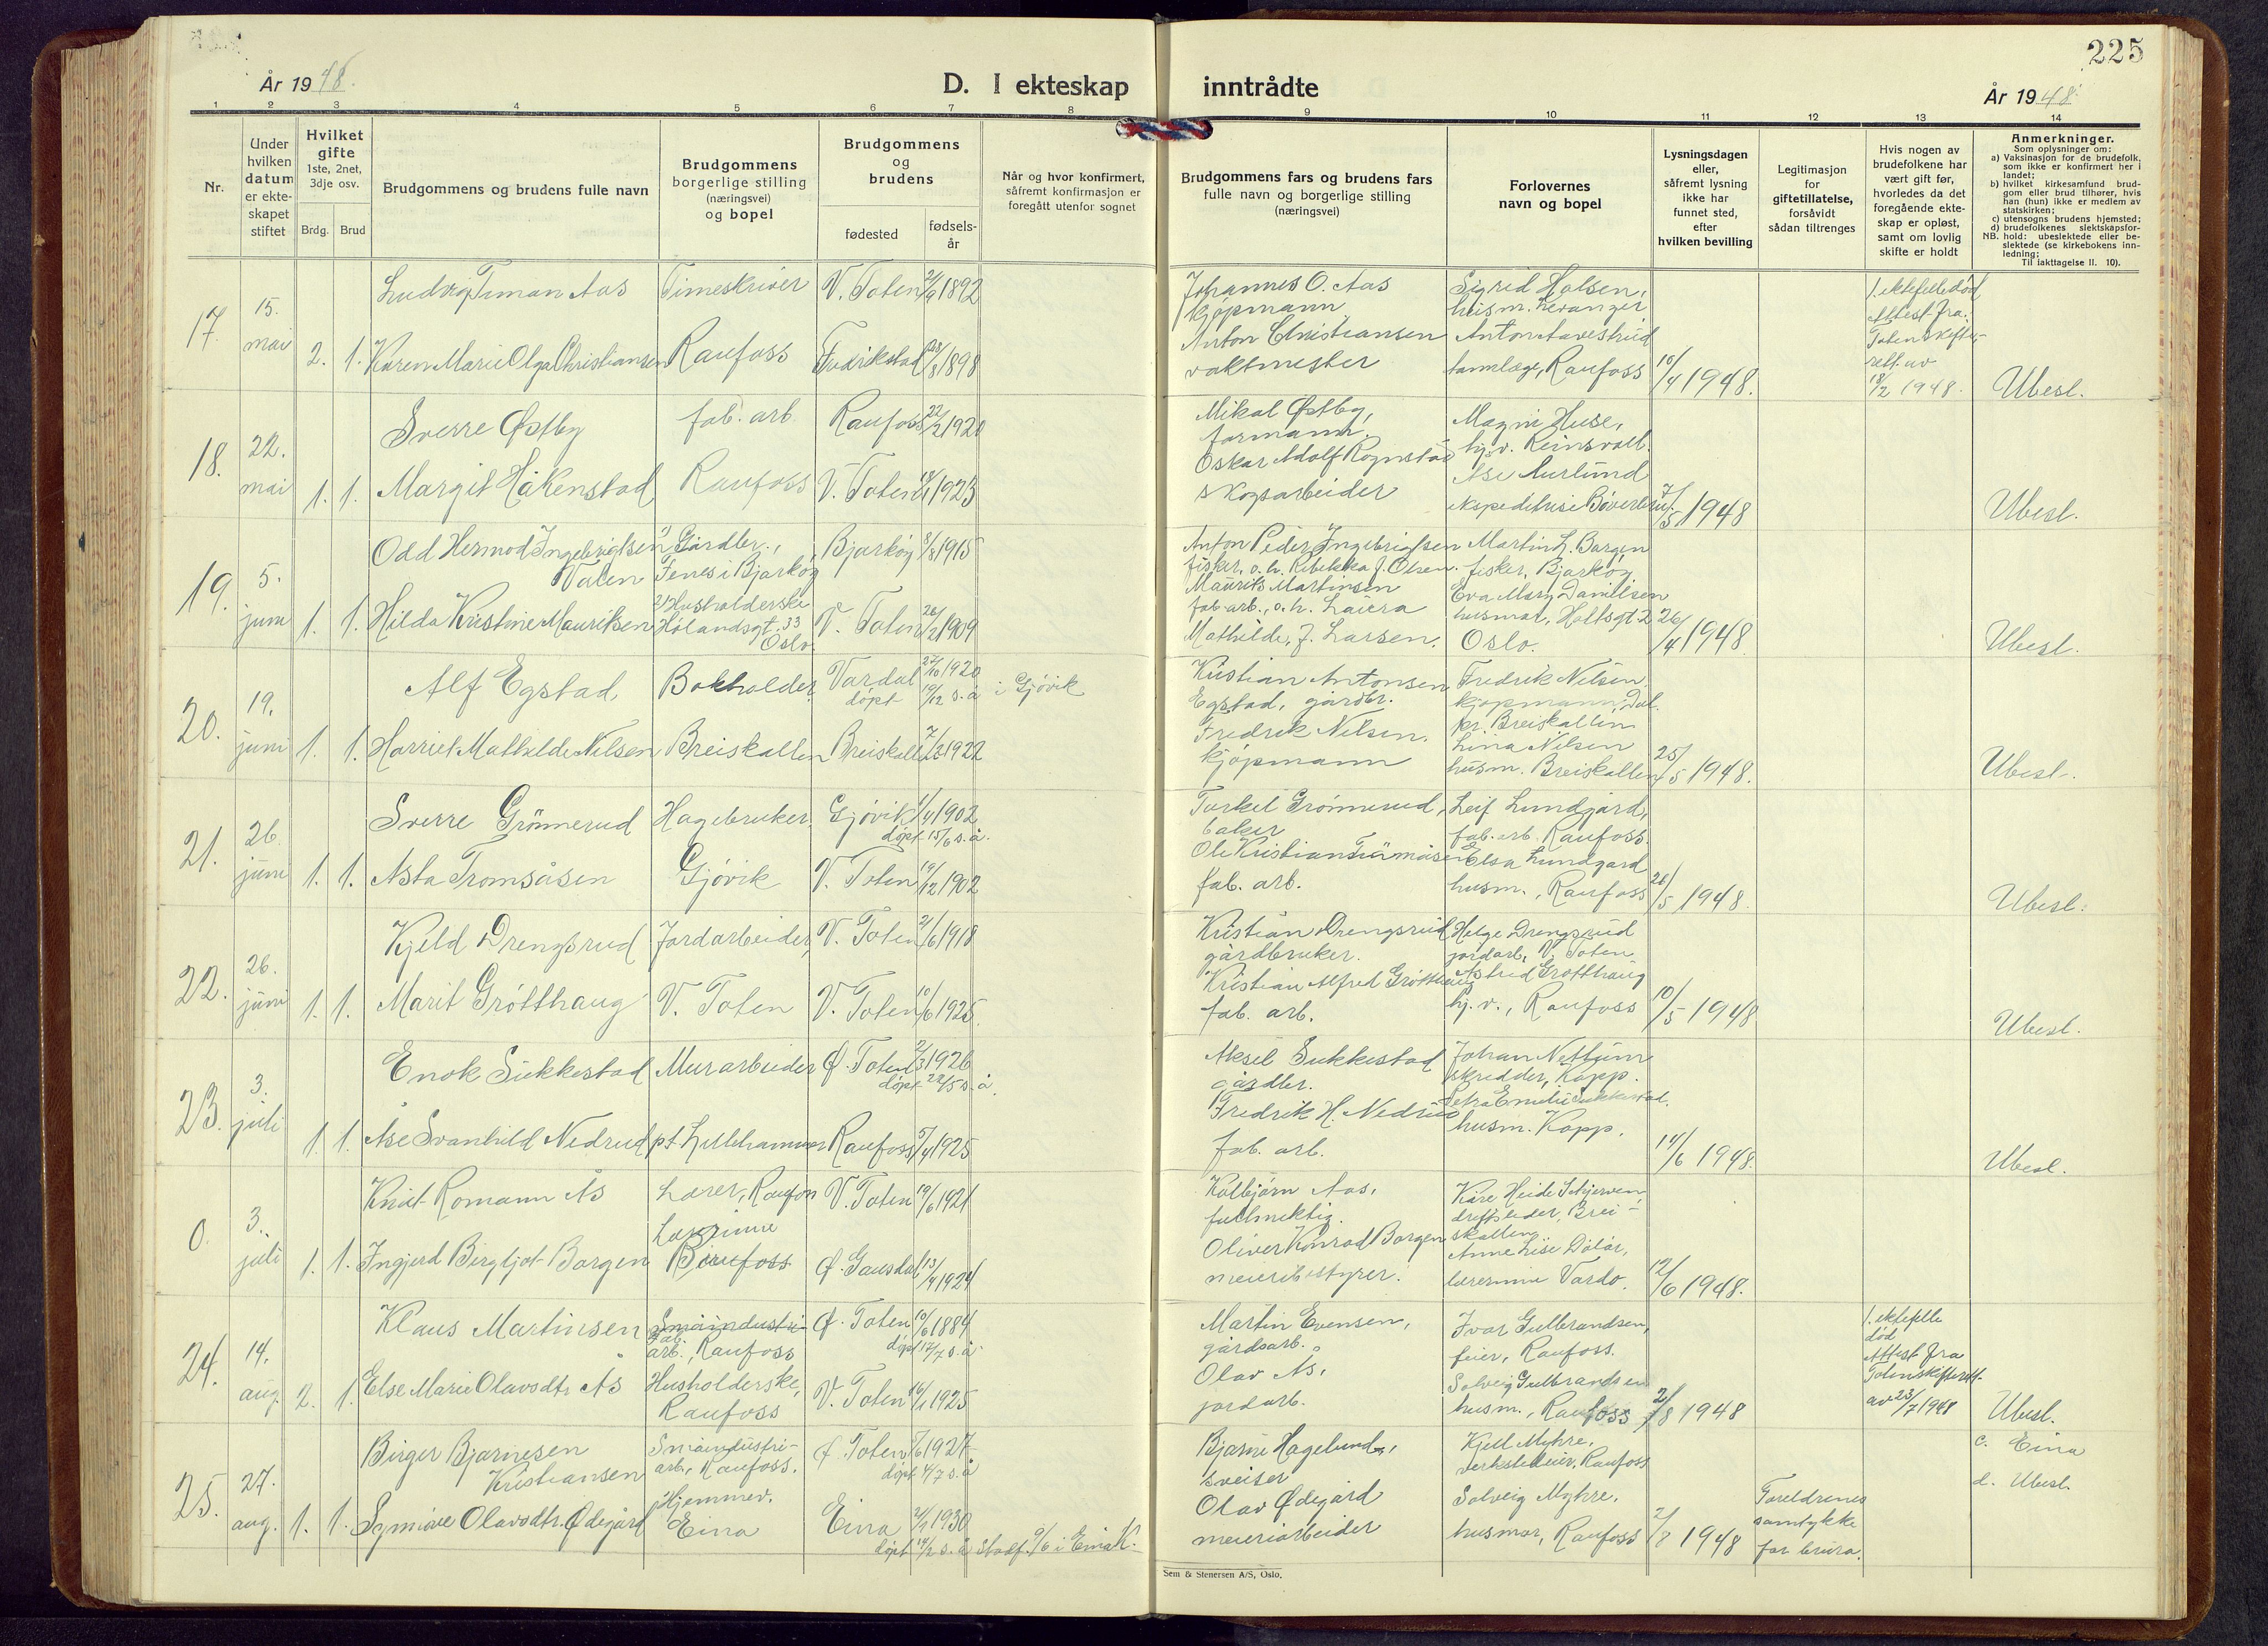 225
År 1948.
D. I ekteskap inntrådte
År 1948.
1 2 3 4 5 6 7 8 9 10 11 12 13 14
Nr.
Under hvilken datum er ekteskapet stiftet
Hvilket gifte
1ste, 2net, 3dje osv.
Brdg. Brud
Brudgommens og brudens fulle navn
Brudgommens borgerlige stilling (næringsvei) og bopel
Brudgommens og brudens
fødested
fødselsår
Når og hvor konfirmert, såfremt konfirmasjon er foregått utenfor sognet
Brudgommens fars og brudens fars fulle navn og borgerlige stilling (næringsvei)
Forlovernes navn og bopel
Lysningsdagen eller, såfremt lysning ikke har funnet sted, efter hvilken bevilling
Legitimasjon for giftetillatelse, forsåvidt sådan tiltrenges
Hvis nogen av brudefolkene har vært gift før, hvorledes da det foregående ekteskap er opløst, samt om lovlig skifte er holdt
Anmerkninger.
Som oplysninger om:
a) Vaksinasjon for de brudefolk, som ikke er konfirmert her i landet;
b) hvilket kirkesamfund brudgom eller brud tilhører, hvis han (hun) ikke er medlem av statskirken;
c) utensogns brudens hjemsted;
d) brudefolkenes slektskapsforhold: ubeslektede eller beslektede (se kirkebokens innledning;
NB.
Til iakttagelse II. 10).
17. 15. mai 2. 1.
Ludvig Timan Aas
Timeskriver
V. Toten 2/9 1892
Karen Marie Olga Christiansen
Raufoss
Fredrikstad 28/8 1898
Johannes O. Aas
kjøpmann
Anton Christiansen
vaktmester
Sigrid Halsen,
husm. Levanger
Anton Aavestrud
tannlege, Raufoss
10/4 1948.
1. ektefelle død
Attest fra
Toten skifte-
rett av
18/2 1948.
Ubesl.
18. 22. mai 1. 1.
Sverre Østby
fab. arb
Raufoss 22/2 1920
Margit Håkenstad
Raufoss
V. Toten 18/1 1923
Mikal Østby,
formann.
Oskar Adolf Rognstad
skogsarbeider
Magni Huse,
hj.v. Reinsvoll.
Åse Aurlund
ekspeditrise Bøverbru.
7/5 1948
Ubesl.
19. 5. juni 1. 1.
Odd Hermod Ingebrigtsen
Valen
1) Gårdbr.,
Fenes i Bjarkøy
Bjarkøy 8/8 1915
Hilda Kristine Mauritsen
2) Husholderske
Hølandsgt. 33
Oslo.
V. Toten 26/2 1909
Anton Peder Ingebrigtsen
fisker, o.h. Rebekka J. Olsen.
Maurits Martinsen
fab. arb., o.h. Laura
Mathilde, f. Larsen.
Martin L. Bargen
fisker, Bjarkøy
Eva Mary Danielsen
husmor, Holtsgt 2
Oslo.
26/4 1948.
Ubesl.
20. 19. juni 1. 1.
Alf Egstad
Bokholder
Vardal 27/10 1920
døpt 19/12 s.å
i Gjøvik
Harriet Mathilde Nilsen
Breiskallen
Breiskallen 7/2 1922
Kristian Antonsen
Egstad, gårdbr.
Fredrik Nilsen.
kjøpmann
Fredrik Nilsen
kjøpmann, Dal.
pr. Breiskallen
Lina Nilsen
husm. Breiskallen
25/5 1948.
Ubesl.
21. 26. juni 1. 1.
Sverre Grønnerud
Hagebruker
Gjøvik 1/4 1902
døpt 15/6 s.å.
Asta Tromsåsen
Gjøvik
V. Toten 19/12 1902
Torkel Grønnerud,
baker
Ole Kristian Tromsåsen
fab. arb.
Leif Lundgård,
fab. arb. Raufoss.
Elsa Lundgard
husm., Raufoss
26/5 1948.
Ubesl.
22. 26. juni 1. 1.
Kjeld Drengsrud
Jordarbeider,
V. Toten 2/6 1918
Marit Grøtthaug
V. Toten
V. Toten 10/6 1925.
Kristian Drengsrud
gårdbruker.
Kristian Alfred Grøtthaug
fab. arb.
Helge Drengsrud
jordarb, V. Toten
Astrid Grøtthaug
hj. v., Raufoss
10/5 1948
Ubesl.
23. 3. juli 1. 1.
Enok Sukkestad
Murarbeider
Ø. Toten 2/3 1926
døpt 22/5 s.å.
Åse Svanhild Nedrud
pt Lillehammer
Raufoss 5/4 1925
Aksel Sukkestad
gårdbr.
Fredrik H. Nedrud
fab. arb.
Johan Nettum
skredder, Kapp.
Petra Emilie Sukkestad.
husm. Kapp.
14/6 1948.
Ubesl.
0. 3. juli 1. 1.
Knut Romann Ås
Lærer, Raufoss
V. Toten 19/6 1921
Ingjerd Bergljot Borgen
Lærerinne
Raufoss
Ø. Gausdal 13/4 1924
Kolbjørn Aas,
fullmektig.
Oliver Konrad Borgen
meieribestyrer.
Kåre Heide Schjerven,
driftsleder, Brei-
skallen
Anne Lise Dølør,
lærerinne Vardø.
12/6 1948.
24. 14. aug. 2. 1.
Klaus Martinsen
Småindustri-
Fab.
arb., Raufoss
Ø. Toten 10/6 1884
døpt 17/7 s.å.
Else Marie Olavsdtr. Ås
Husholderske,
Raufoss
V. Toten 16/1 1925
Martin Evensen,
gårdsarb.
Olav Ås,
jordarb.
Ivar Gulbrandsen,
feier, Raufoss.
Solveig Gulbrandsen
husm., Raufoss
2/8 1948
1. ektefelle
død
Attest fra
Toten skifterett
av 23/7 1948
Ubesl.
25. 27. aug. 1. 1.
Birger Bjarnesen
Kristiansen
Småindustri-
arb., Raufoss.
Ø. Toten 5/6 1927
døpt 4/7 s.å
Synnøve Olavsdtr. Ødegård
Hjemmev.
Eina
Eina 21/1 1930
døpt 14/2 s.å stadf. 9/6 i Eina K.
Bjarne Hagelund,
sveiser
Olav Ødegård
meieriarbeider
Kjell Myhre,
verkstedeier, Raufoss
Solveig Myhre,
husmor, Raufoss
2/8 1948
Foreldrenes
samtykke
for brura.
c. Eina
d. Ubesl.
Sem & Stenersen A/S, Oslo.